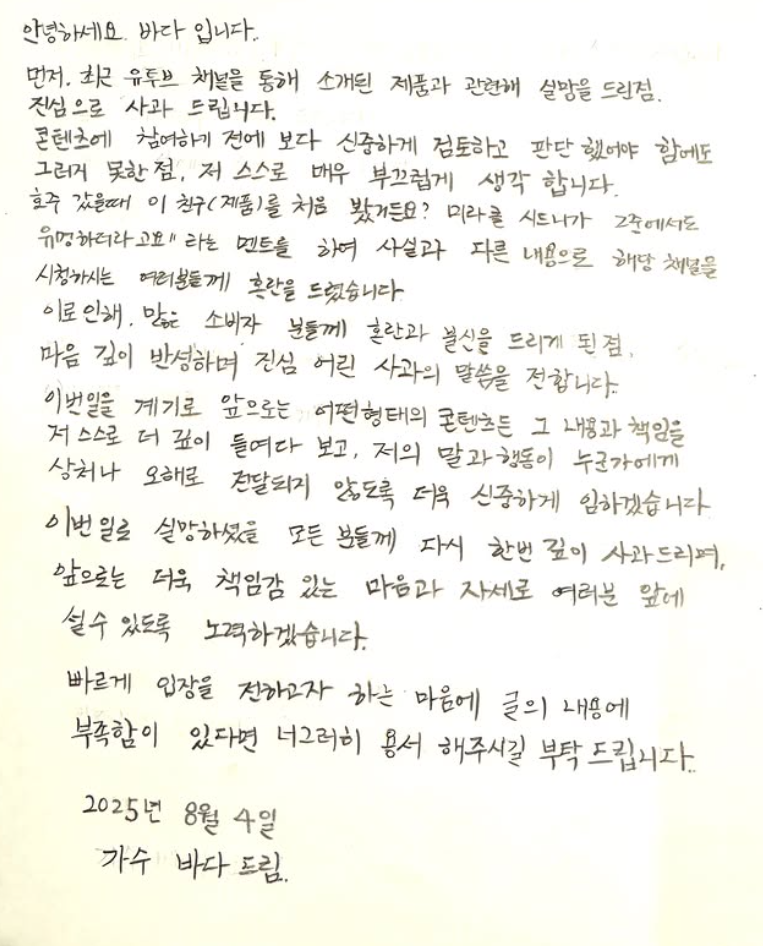 안녕하세요. 바다 입니다..
먼저. 최근 유투브 채널을 통해 소개된 제품과 관련해 실망을 드린점.
진심으로 사과 드립니다.
콘텐츠에 참여하기 전에 보다 신중하게 검토하고 판단 했어야 함에도
그러지 못한 점, 저 스스로 매우 부끄럽게 생각 합니다.
호주 갔을때 이 친구(제품)를 처음 봤거든요? 미라클 시드니가 그중에서도
유명하더라고요" 라는 멘트를 하여 사실과 다른 내용으로 해당 채널을
시청하시는 여러분들께 혼란을 드렸습니다.
이로인해. 많은 소비자 분들께 혼란과 불신을 드리게 된 점,
마음 깊이 반성하며 진심 어린 사과의 말씀을 전합니다..
이번일을 계기로 앞으로는 어떤형태의 콘텐츠든 그 내용과 책임을
저 스스로 더 깊이 들여다 보고, 저의 말과 행동이 누군가에게
상처나 오해로 전달되지 않도록 더욱 신중하게 임하겠습니다.
이번 일로 실망하셨을 모든 분들께 다시 한번 깊이 사과드리며,
앞으로는 더욱 책임감 있는 마음과 자세로 여러분 앞에
설수 있도록 노력하겠습니다.
빠르게 입장을 전하고자 하는 마음에 글의 내용에
부족함이 있다면 너그러히 용서 해주시길 부탁 드립니다..
2025년 8월 4일
가수 바다 드림.